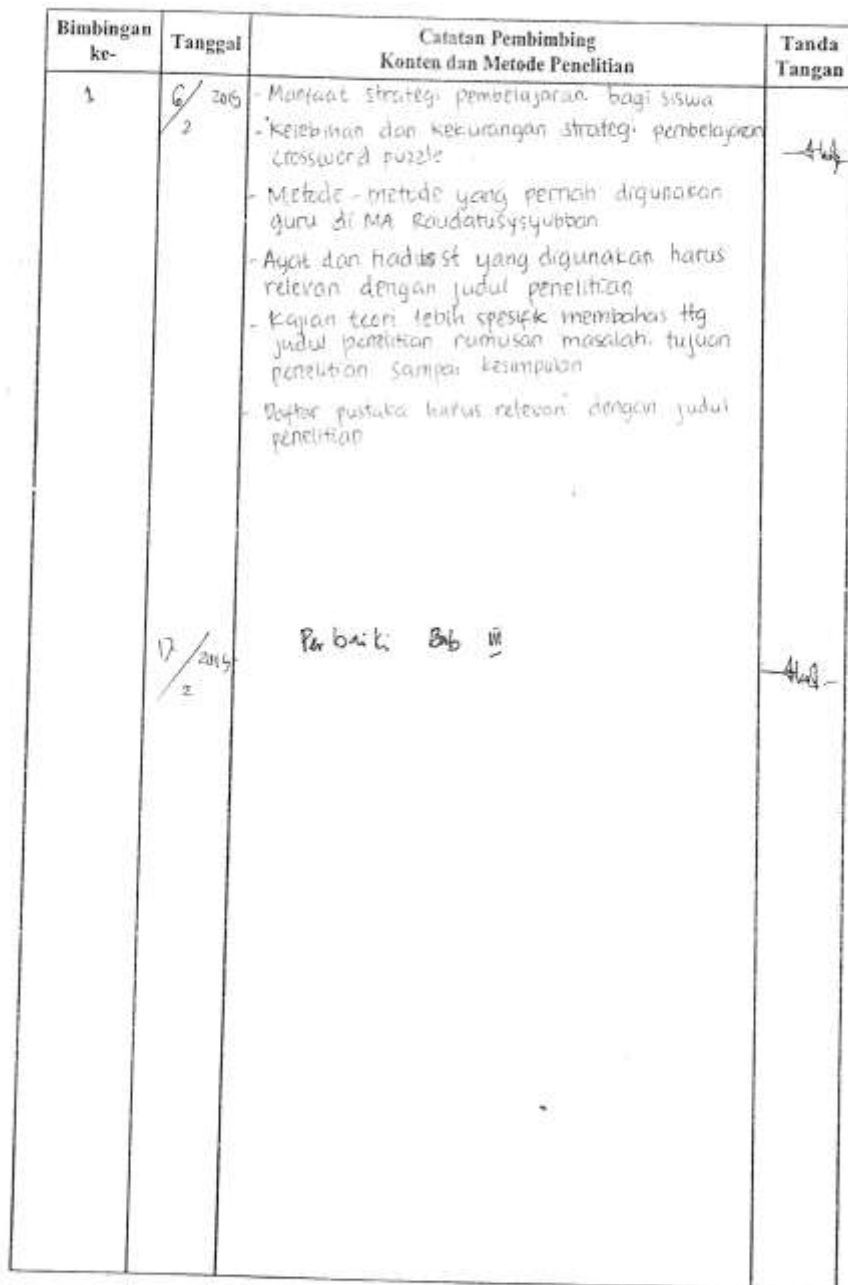 Bimbingan ke-
Tanggal
Catatan Pembimbing
Konten dan Metode Penelitian
Tanda Tangan
1
6/2 2015
- Manfaat strategi pembelajaran bagi siswa
- Kelebihan dan kekurangan strategi pembelajaran
crossword puzzle
- Metode - metode yang pernah digunakan
guru di MA Raudatusysyubban
- Ayat dan hadist yang digunakan harus
relevan dengan judul penelitian
- Kajian teori lebih spesifik membahas ttg
judul penelitian rumusan masalah. tujuan
penelitian sampai kesimpulan
- Daftar pustaka harus relevan dengan judul
penelitian
17/2 2015
Perbaiki Bab III